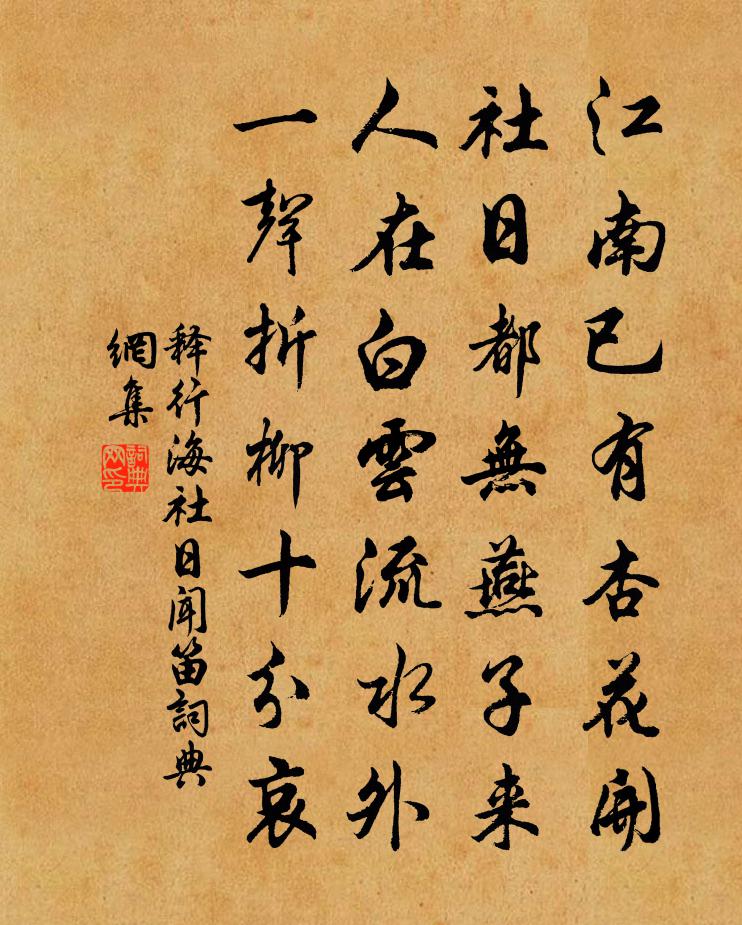 江南已有杏花開
社日都無燕子来
人在白雲流水外
一聲折柳十分哀
释行海社日聞笛詞典
網集
詞典网印